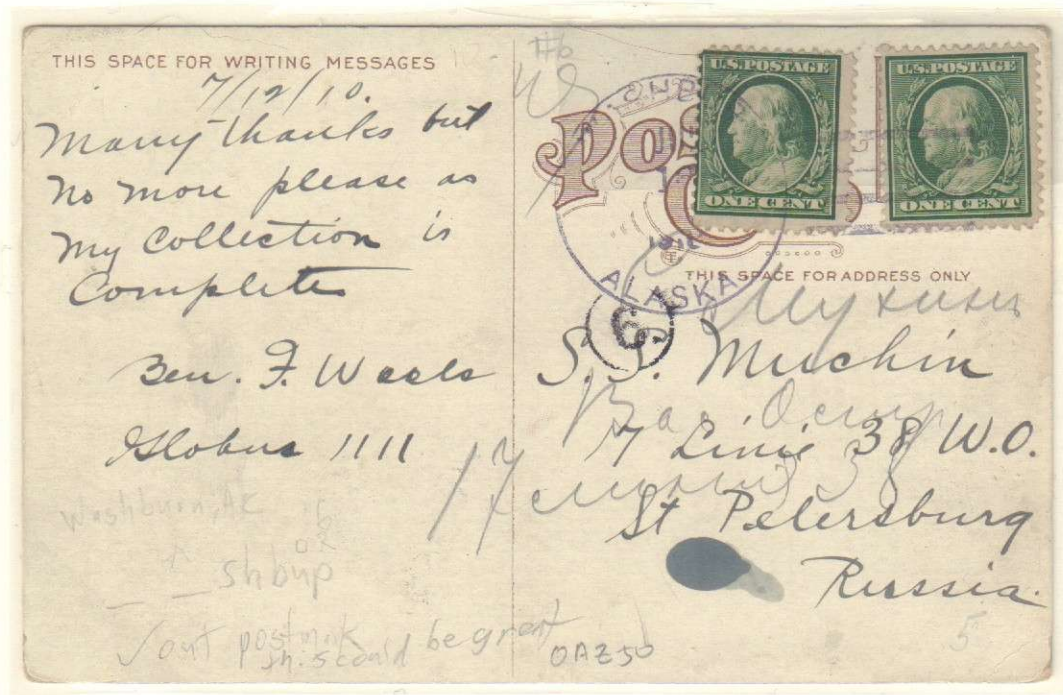 THIS SPACE FOR WRITING MESSAGES
7/12/10.
Many thanks but
no more please as
my Collection is
Complete
Ben. F.
Globus 1111
Washburn, AK
shbup
out postmark
this could be great
OAZ50
#6
Post
U.S. POSTAGE
ONE CENT
U.S. POSTAGE
ONE CENT
1910
ALASKA
THIS SPACE FOR ADDRESS ONLY
6
Мухину
S. S. Muchin
Вас. Остр
17 Linie 38 W.O.
17 линия 38
St Petersburg
Russia.
5